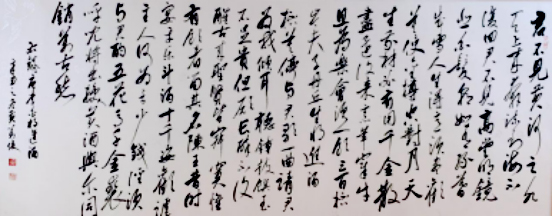 君不見黄河之水
天上來奔流到海不
復回君不見高堂明鏡
悲白髮朝如青絲暮
成雪人生得意須盡歡
莫使金樽空對月天
生我材必有用千金散
盡還復來烹羊宰牛
且為樂會須一飲三百杯
岑夫子丹丘生將進酒
杯莫停與君歌一曲請君
為我傾耳聽鐘鼓饌玉
不足貴但願長醉不復
醒古來聖賢皆寂寞惟
有飲者留其名陳王昔時
宴平樂斗酒十千恣歡謔
主人何為言少錢徑須
君酌五花馬千金裘
呼兒將出換美酒與爾同
銷萬古愁
李白將進酒